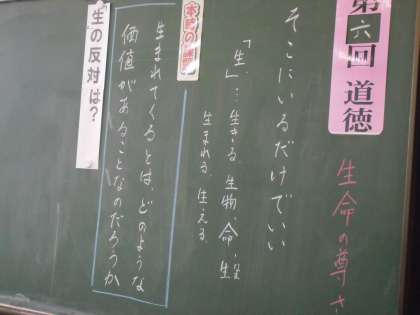 第六回 道徳
生命の尊さ
そこにいるだけでいい
「生」…生きる、生物、命、
生まれる、生える、
本時の課題
生まれてくるとは、どのような
価値があることなのだろうか
生の反対は？